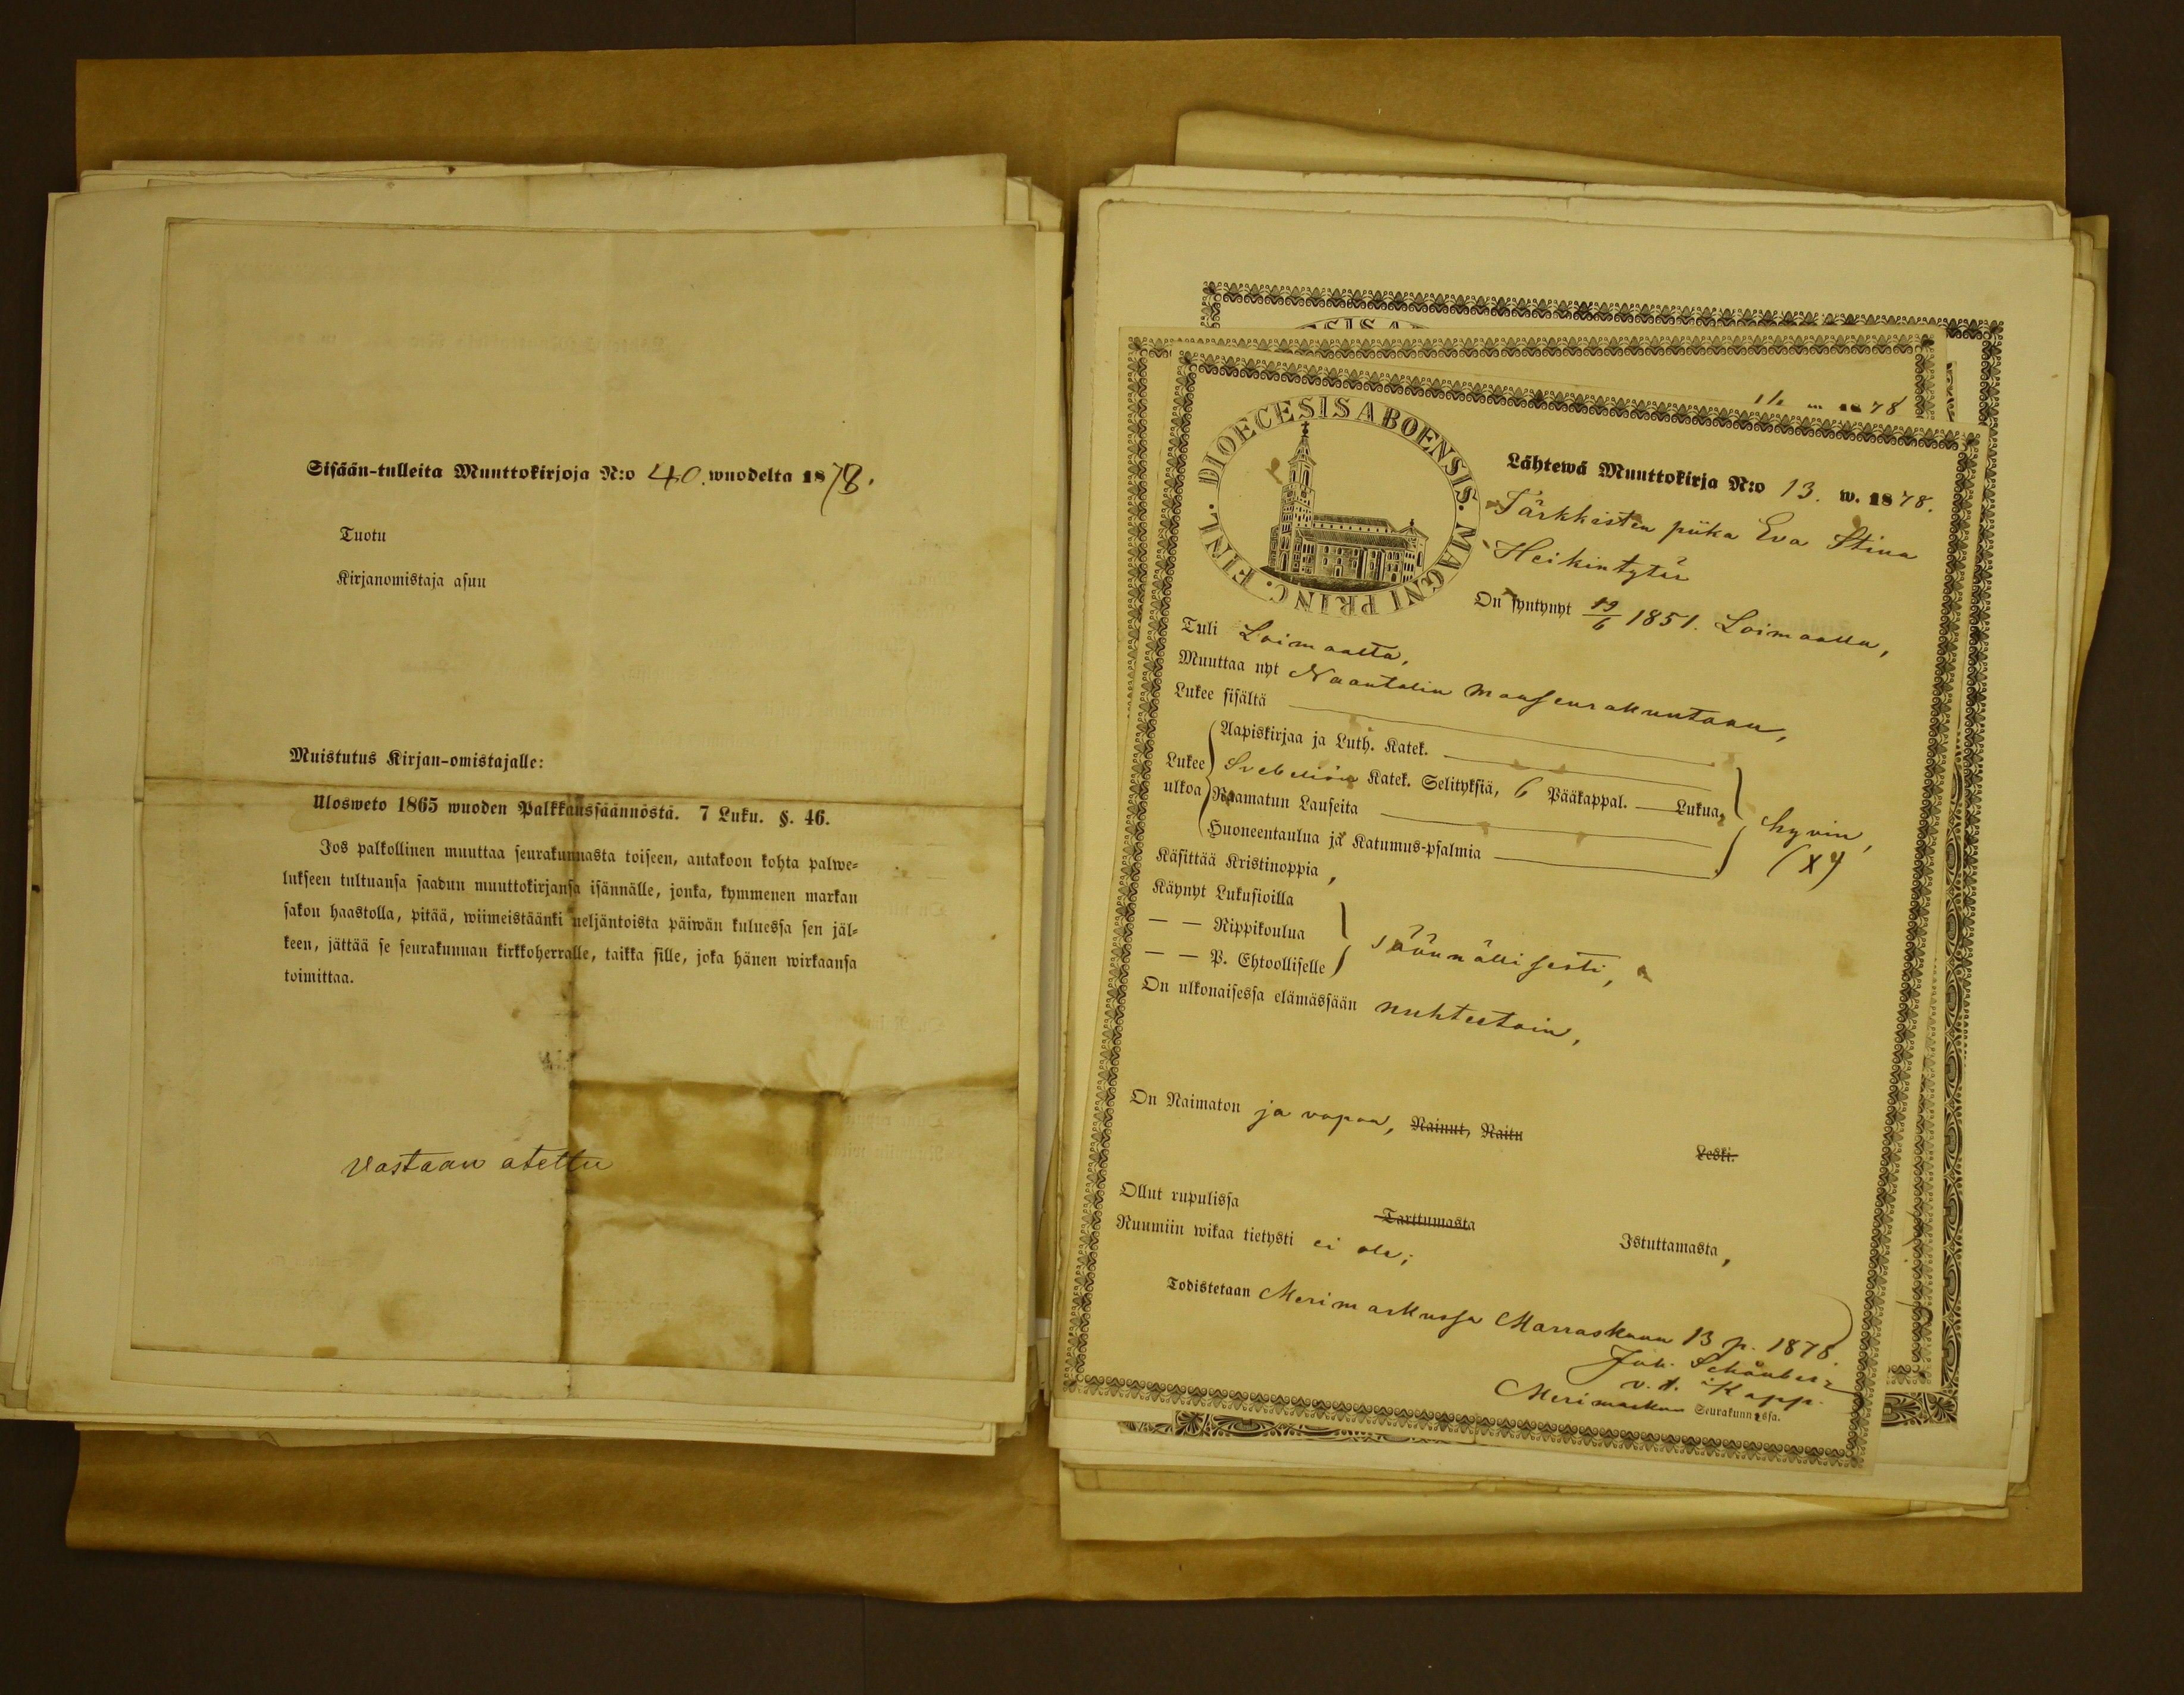 Sisään-tulleita Muuttokirjoja N:o 40. wuodelta 1878.
Tuotu
Kirjanomistaja asuu
Muistutus Kirjan-omistajalle:
Ulosweto 1865 wuoden Palkkaussäännöstä. 7 Luku. §. 46.
Jos palkollinen muuttaa seurakunnasta toiseen, antakoon kohta palwe-
lukseen tultuansa saadun muuttokirjansa isännälle, jonka, kymmenen markan
sakon haastolla, pitää, wiimeistäänki neljäntoista päiwän kuluessa sen jäl-
keen, jättää se seurakunnan kirkkoherralle, taikka sille, joka hänen wirkaansa
toimittaa.
Vastaan otettu
1878
DIOECESIS ABOENSIS. MAGNI PRINC. FINL.
Lähtewä Muuttokirja N:o 13. w. 1878.
Tärkkisten piika Eva Stina
Heikintytär
On syntynyt 19/6 1851. Loimaalla,
Tuli Loimaalta,
Muuttaa nyt Naantalin maaseurakuntaan,
Lukee sisältä
Lukee ulkoa
Aapiskirjaa ja Luth. Katek.
Svebeliön Katek. Selityksiä, 6 Pääkappal. — Lukua,
Raamatun Lauseita
Huoneentaulua ja Katumus-psalmia
hyvin,
(X)
Käsittää Kristinoppia,
Käynyt Lukusioilla
— — Rippikoulua
— — P. Ehtoolliselle
säännöllisesti,
On ulkonaisessa elämässään nuhteetoin,
On Naimaton ja vapaa, Nainut, Naitu Leski.
Ollut rupulissa Tarttumasta Istuttamasta,
Ruumiin wikaa tietysti ei ole;
Todistetaan Merimaskussa Marraskuun 13 p. 1878.
Joh. Schönberg
v. t. Kapp.
Merimaskun Seurakunnassa.